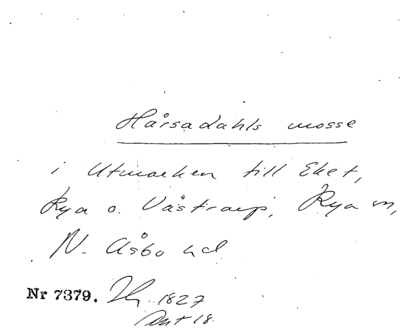 Hårsadahls mosse
i Utmarken till Eket,
Rya o. Västraup, Rya sn,
N. Åsbo hd
Nr 7379. 1827